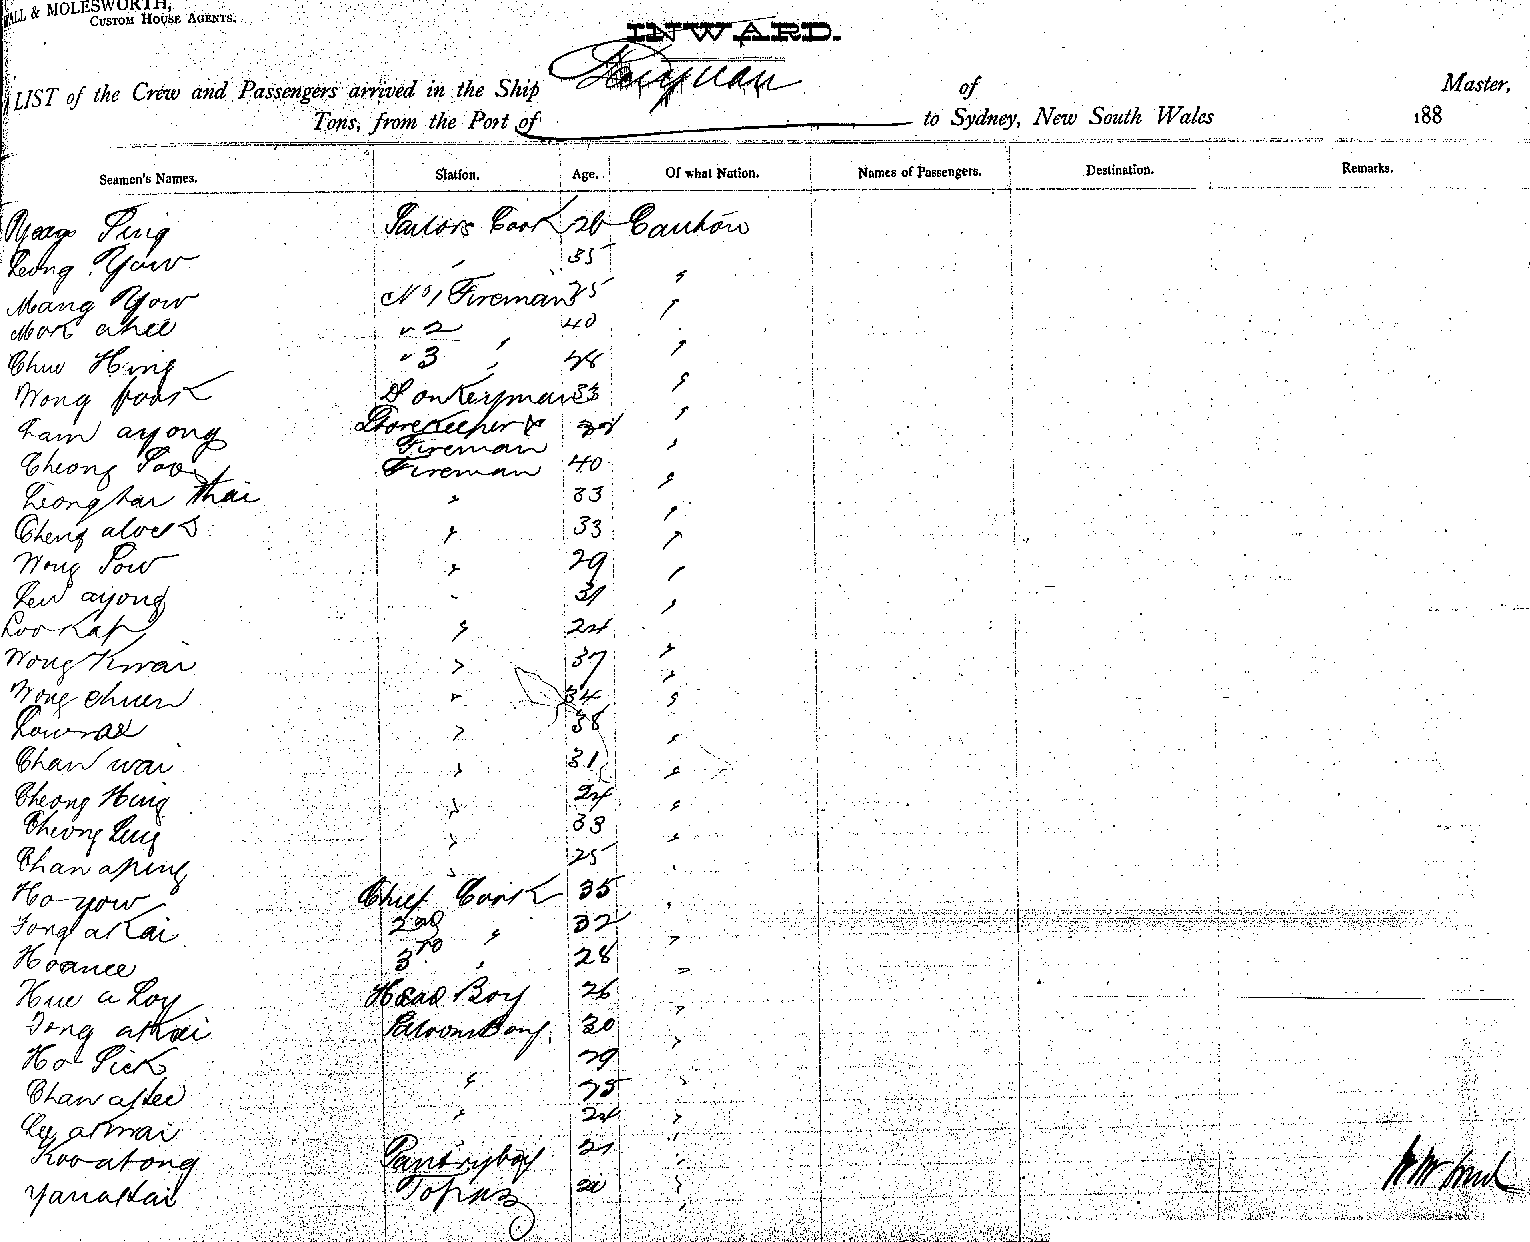 WALL & MOLESWORTH,
CUSTOM HOUSE AGENTS.
INWARD.
LIST of the Crew and Passengers arrived in the Ship Taiyuan of Master,
Tons, from the Port of to Sydney, New South Wales 188
Seamen's Names. Station. Age. Of what Nation. Names of Passengers. Destination. Remarks.
Ping Sailors Cook 26 Canton
Leong Yow " 35 "
Mang Yow No 1 Fireman 35 "
Mok ahee " 2 " 40 "
Chu Hing " 3 " 28 "
Wong fook Donkeyman 33 "
Lam ayong Storekeeper & "
Fireman
Cheong Fireman 40 "
Leong tai thai " 33 "
Cheng alock " 33 "
Wong Sow " 29 "
Leu ayong " 31 "
Loo Kap " 24 "
Wong Kwai " 37 "
Wong chuen " 34 "
" 38 "
Chan wai " 31 "
Cheong Hing " 24 "
Cheong Ling " 33 "
Chan aping " 25 "
Ho yow Chief Cook 35 "
Tong a Kai 2nd " 32 "
Ho anee 3rd " 28 "
Hue a Loy Head Boy 26 "
Tong a Kai 30 "
Ho Sick " 29 "
Chan " 25 "
24 "
Koo atong Pantryboy 21 "
Topaz "